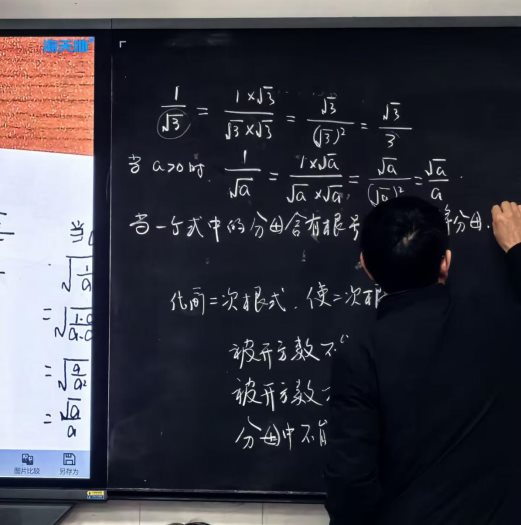 当
√(1/a)
= √(1·a/a·a)
= √(a/a²)
= √a/a
图片比较 另存为
1/√3 = 1×√3/√3×√3 = √3/(√3)² = √3/3
当 a>0时. 1/√a = 1×√a/√a×√a = √a/(√a)² = √a/a .
当一个式中的分母含有根号 分母.
化简二次根式. 使二次根
被开方数不
被开方数不
分母中不